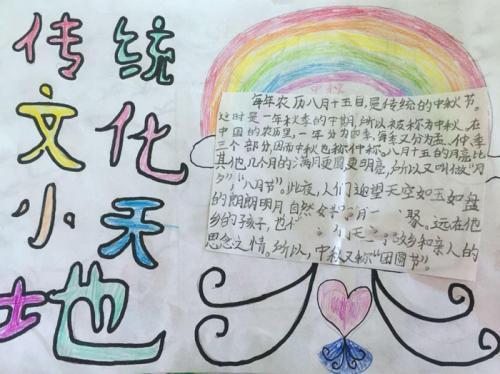 传统
文化
小天
地
中秋
每年农历八月十五日,是传统的中秋节。
这时是一年秋季的中期,所以被称为中秋。在
中国的农历里,一年分为四季,每季又分为孟、仲、季
三个部分,因而中秋也称仲秋。八月十五的月亮比
其他几个月的满月更圆,更明亮,所以又叫做"月
夕","八月节"。此夜,人们追望天空如玉如盘
的朗朗明月自然
聚。远在他
乡的孩子,也
故乡和亲人的
思念之情。所以,中秋又称"团圆节"。